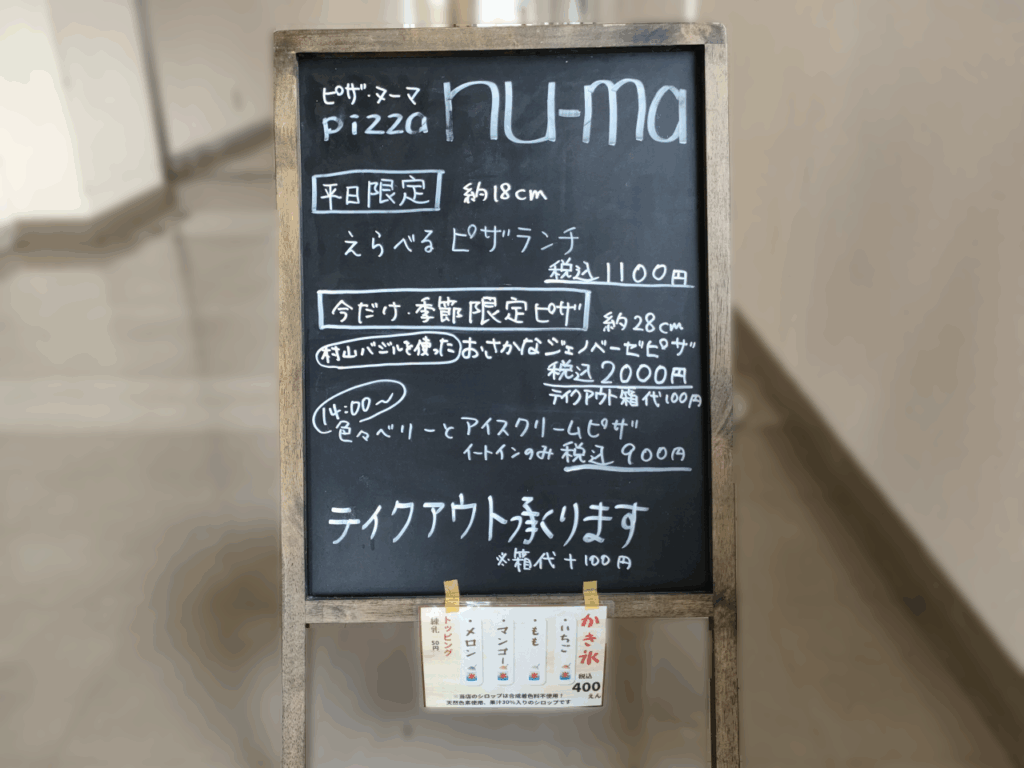 ピザ・ヌーマ
pizza nu-ma
平日限定 約18cm
えらべるピザランチ
税込1100円
今だけ・季節限定ピザ 約28cm
村山バジルを使った おさかなジェノベーゼピザ
税込2000円
テイクアウト箱代100円
14:00〜
色々ベリーとアイスクリームピザ
イートインのみ 税込900円
テイクアウト承ります
※箱代+100円
かき氷
税込
400えん
・いちご
・もも
・マンゴー
・メロン
トッピング
練乳 50円
※当店のシロップは合成着色料不使用!
天然色素使用、果汁30%入りのシロップです